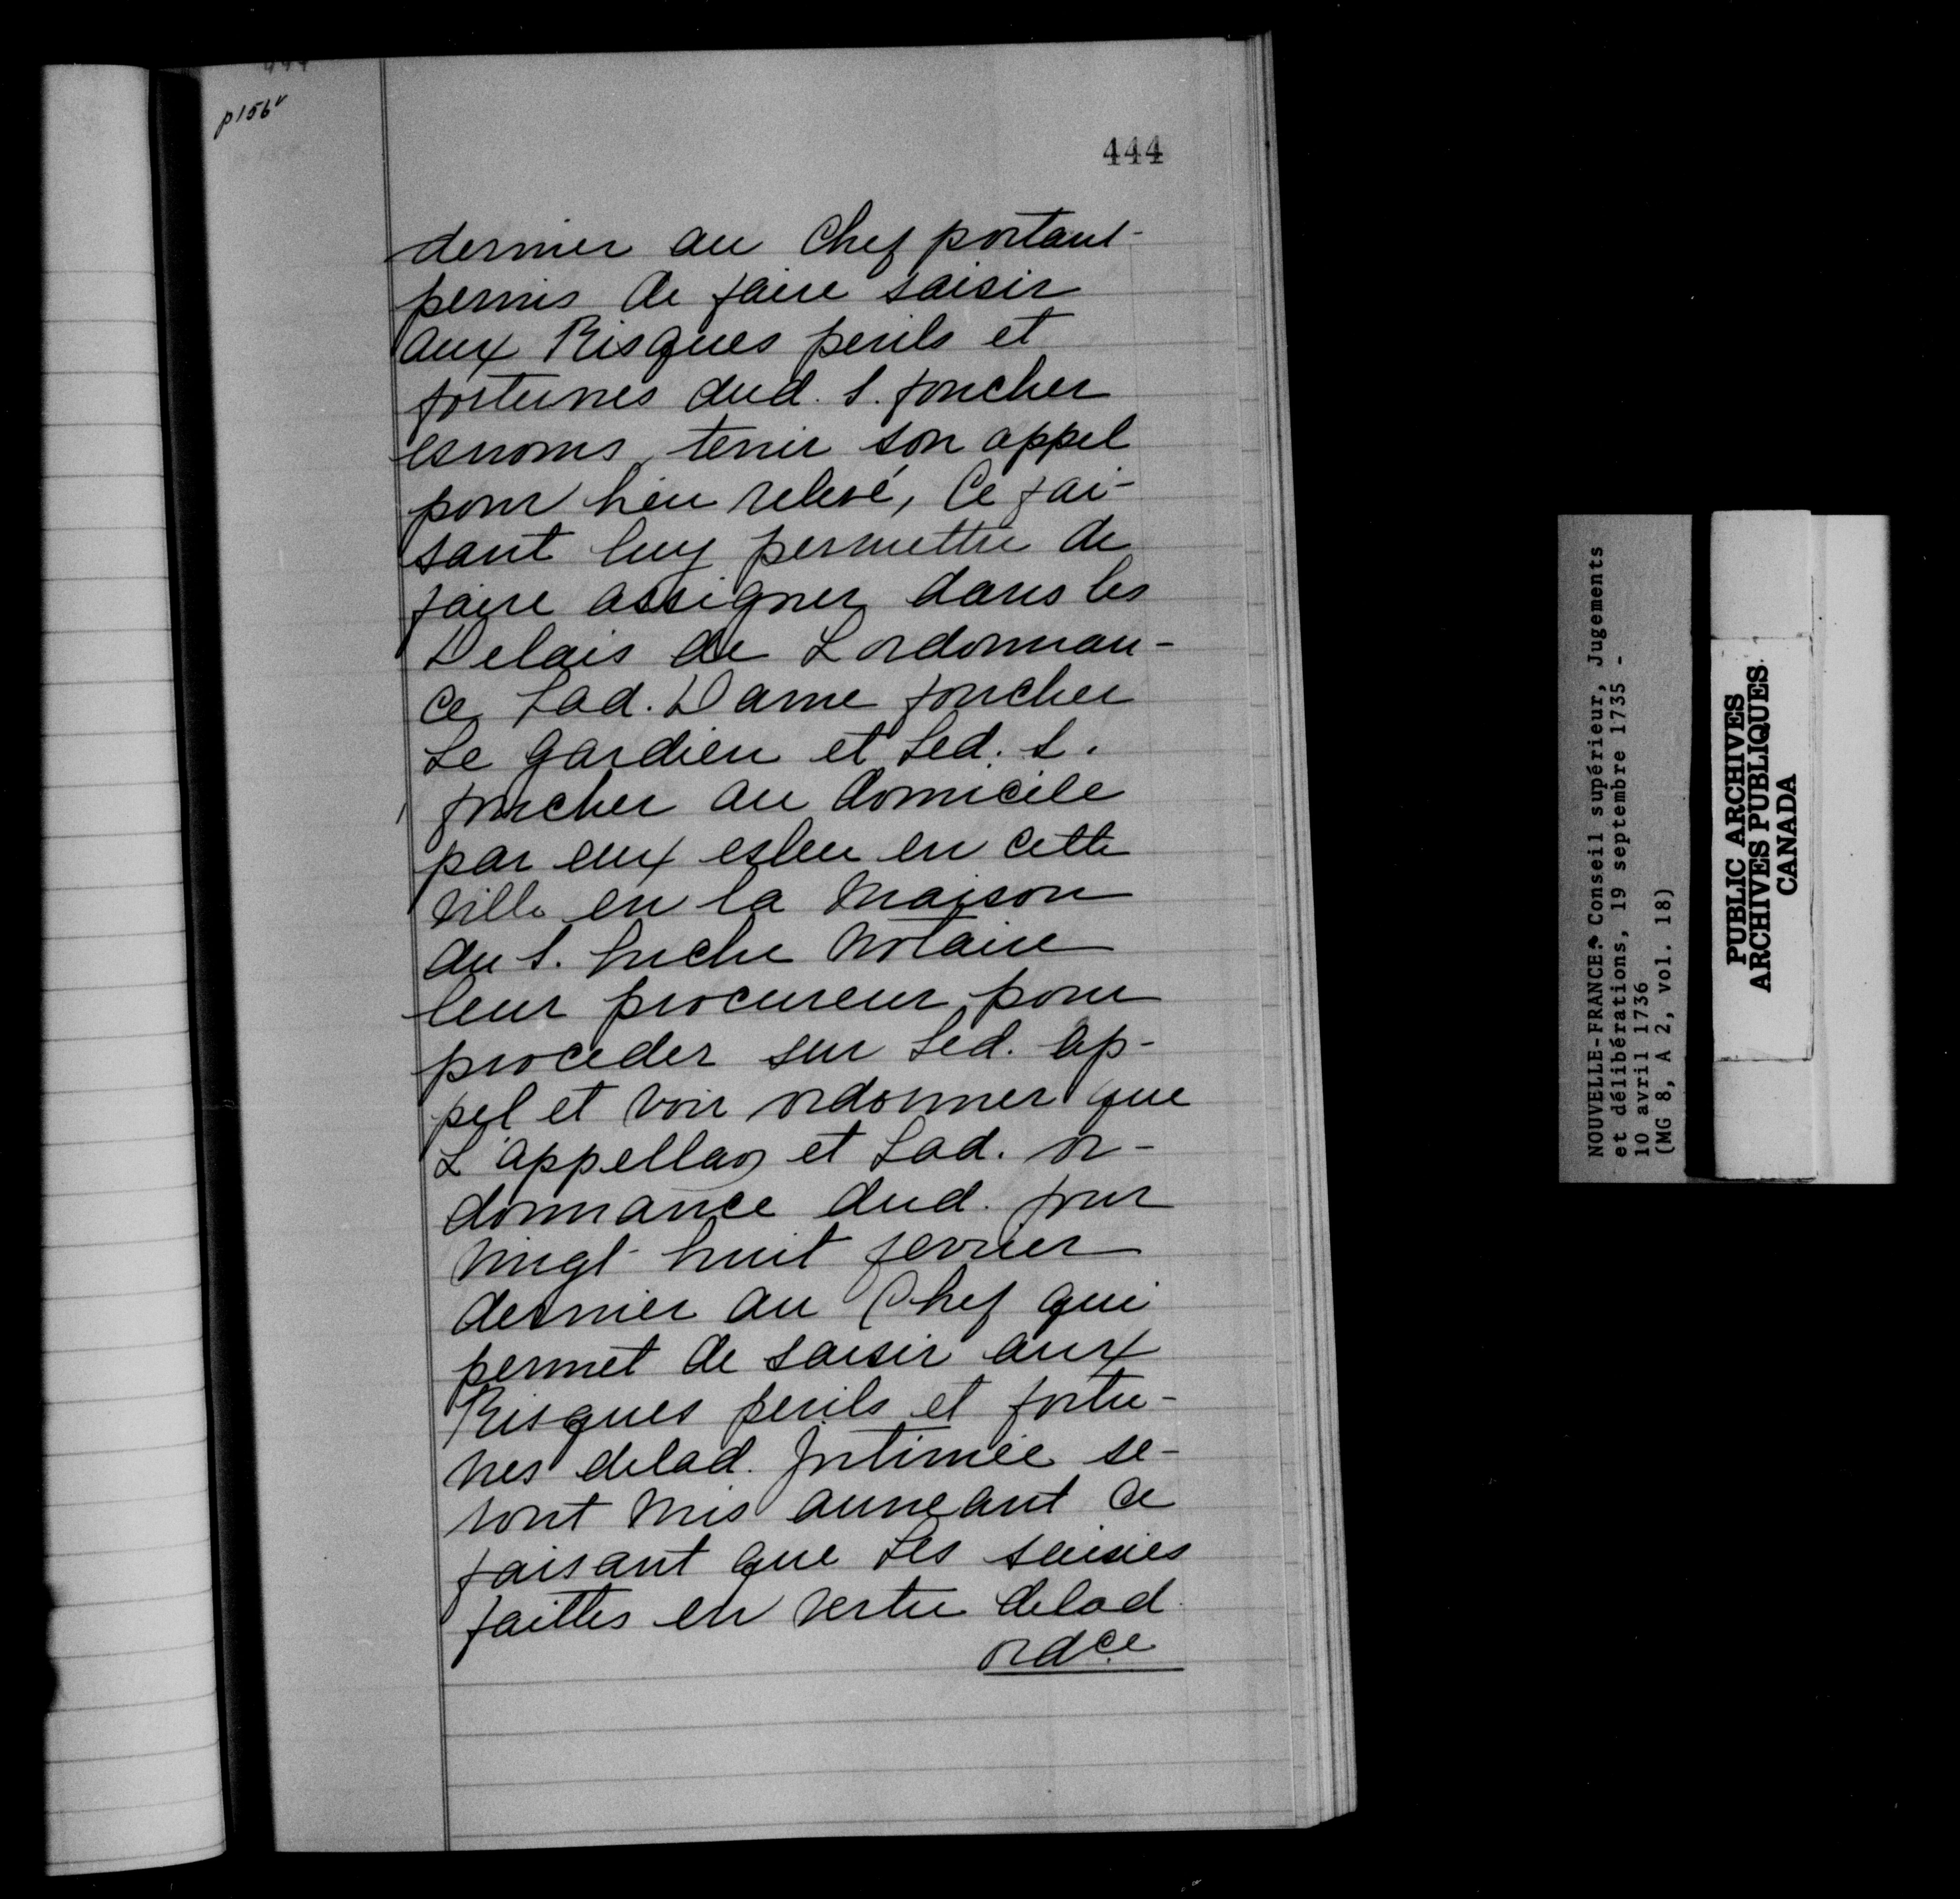 p156v
444
dernier au Chef portant
permis de faire saisir
aux Risques perils et
fortunes dud. S. foucher
esnoms, tenir son appel
pour bien relevé, Ce fai-
sant luy permettre de
faire assigner dans les
Delais de Lordonnan-
ce, Lad. Dame foucher
Le gardien et Led. S.
foucher au domicile
par eux esleu en cette
ville en la maison
du S. hiche Notaire
leur procureur, pour
proceder sur Led. ap-
pel et voir ordonner que
L'appellaôn et Lad. or-
donnance dud. jour
vingt huit fevrier
dernier au Chef qui
permet de saisir aux
Risques perils et fortu-
nes delad. Jntimée se-
ront mis anneant Ce
faisant que Les saisies
faittes en vertu delad.
ordce
NOUVELLE-FRANCE. Conseil supérieur, Jugements
et délibérations, 19 septembre 1735 -
10 avril 1736
(MG 8, A 2, vol. 18)
PUBLIC ARCHIVES
ARCHIVES PUBLIQUES
CANADA